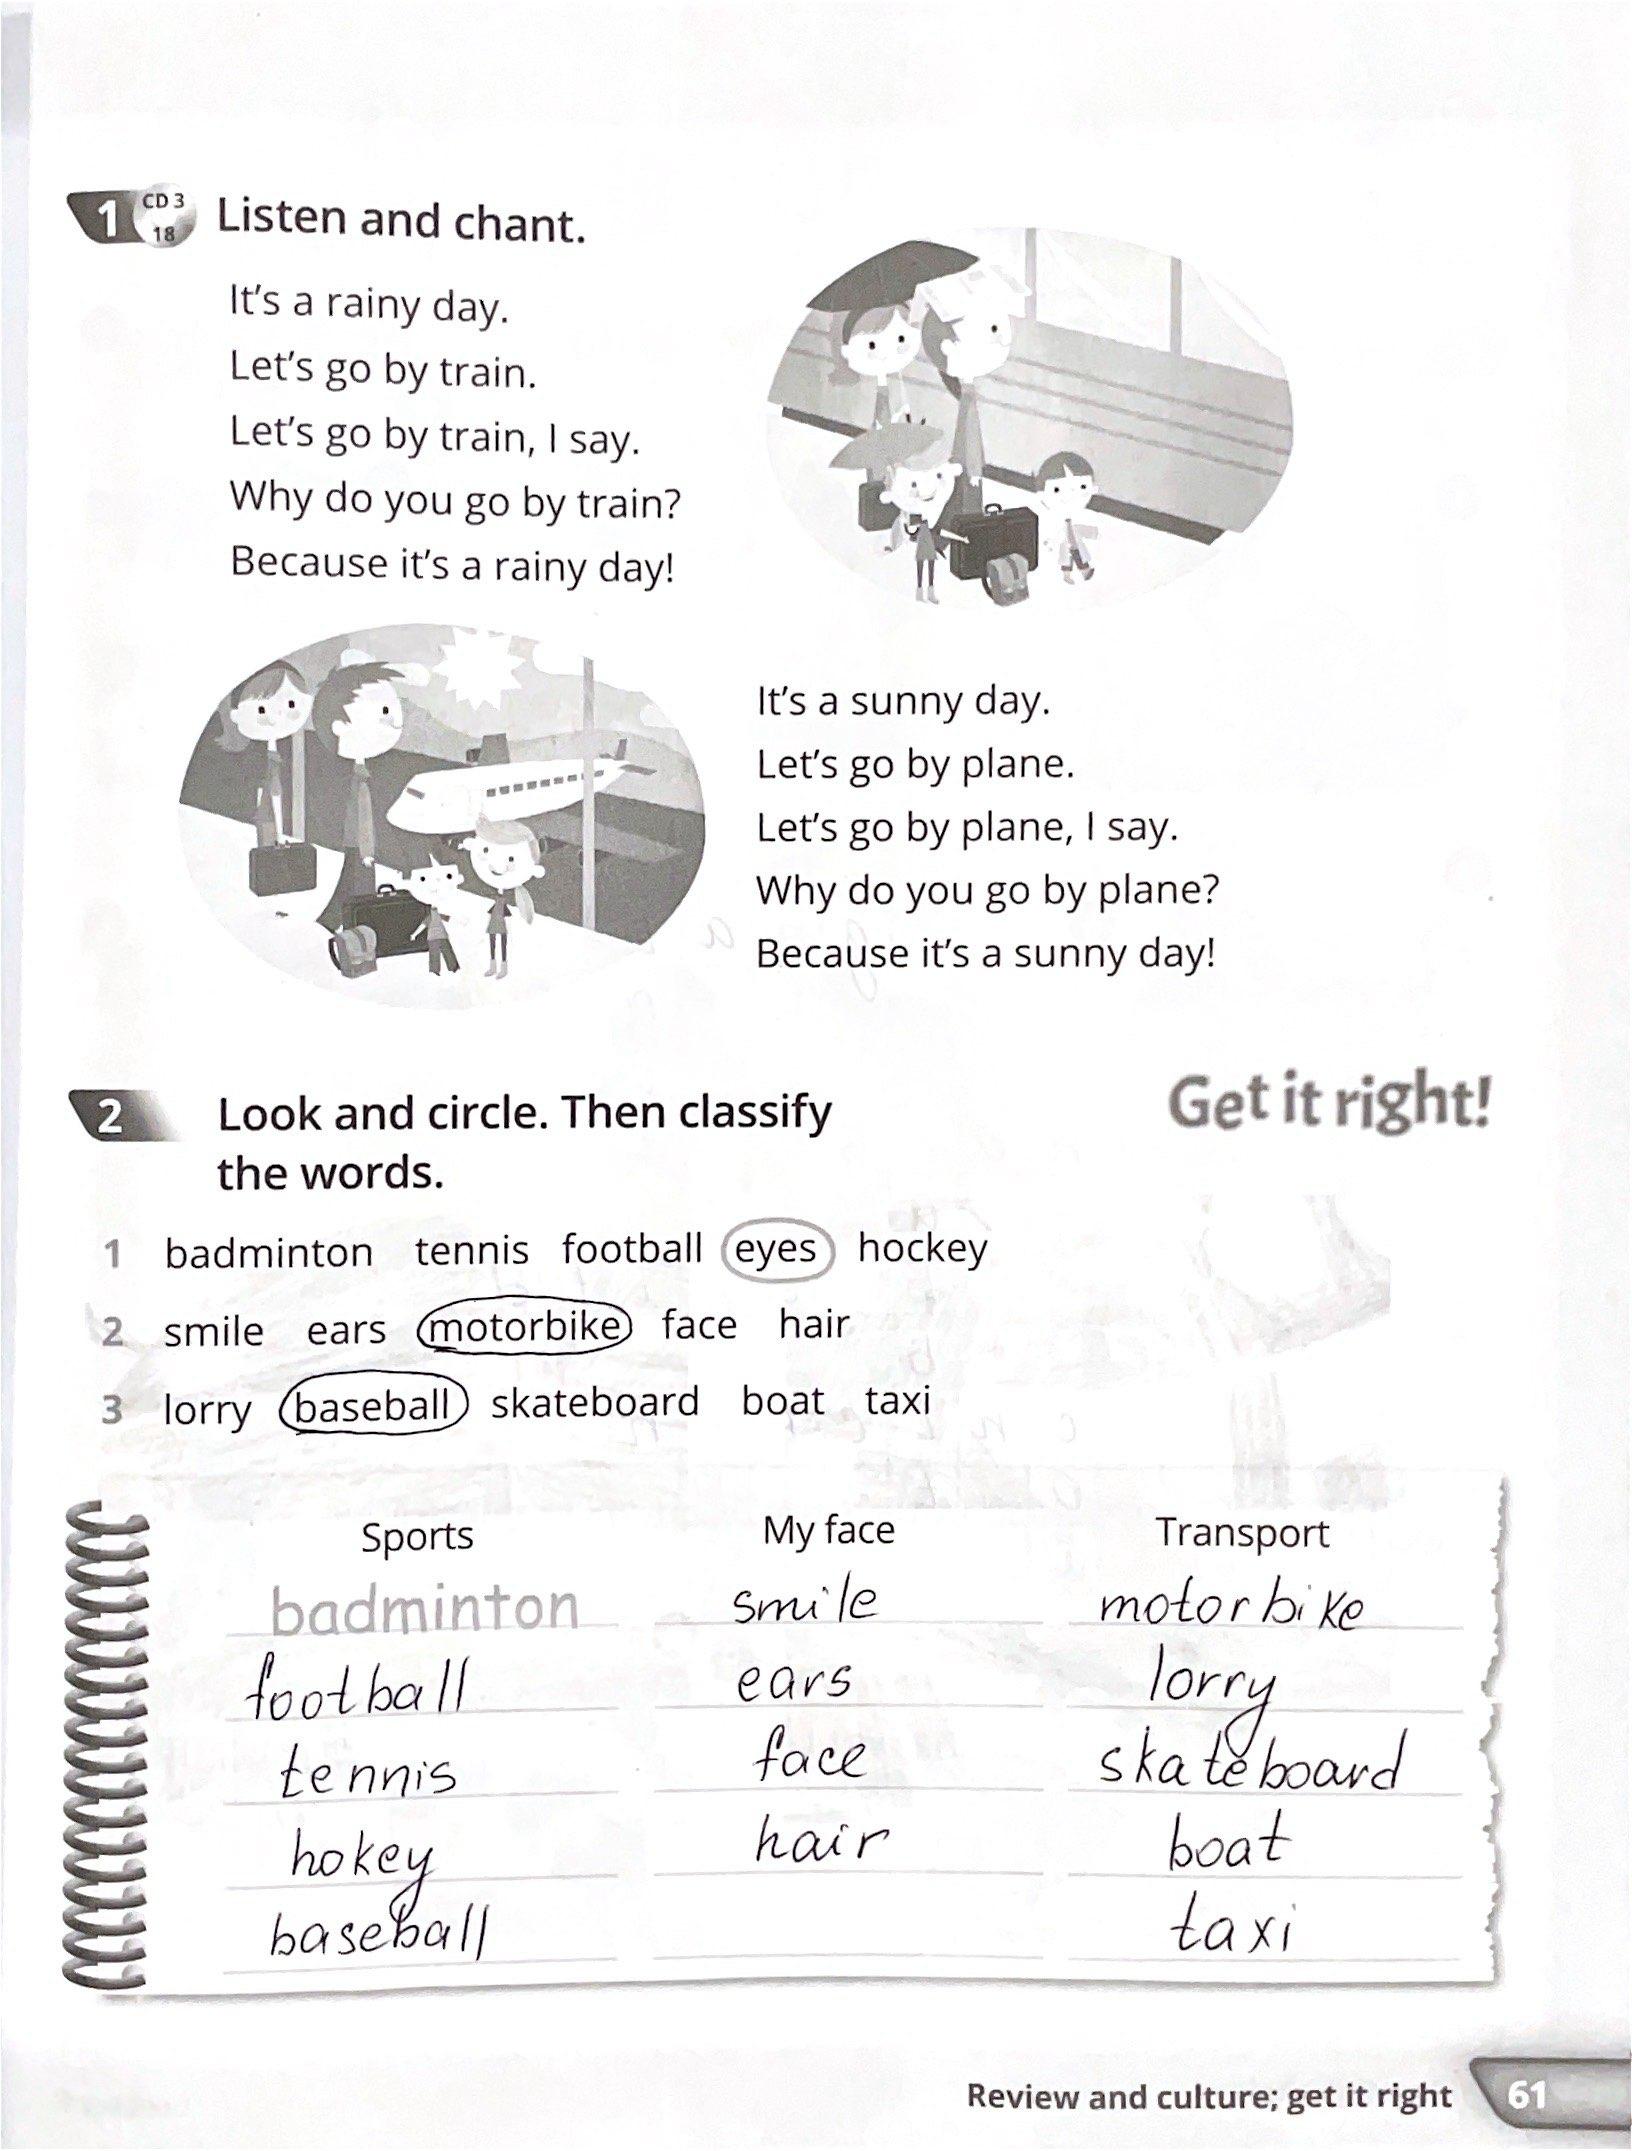 1 CD 3 18 Listen and chant.
It's a rainy day.
Let's go by train.
Let's go by train, I say.
Why do you go by train?
Because it's a rainy day!
It's a sunny day.
Let's go by plane.
Let's go by plane, I say.
Why do you go by plane?
Because it's a sunny day!
2 Look and circle. Then classify
the words.
Get it right!
1 badminton tennis football eyes hockey
2 smile ears motorbike face hair
3 lorry baseball skateboard boat taxi
Sports My face Transport
badminton smile motorbike
football ears lorry
tennis face skateboard
hokey hair boat
baseball taxi
Review and culture; get it right 61